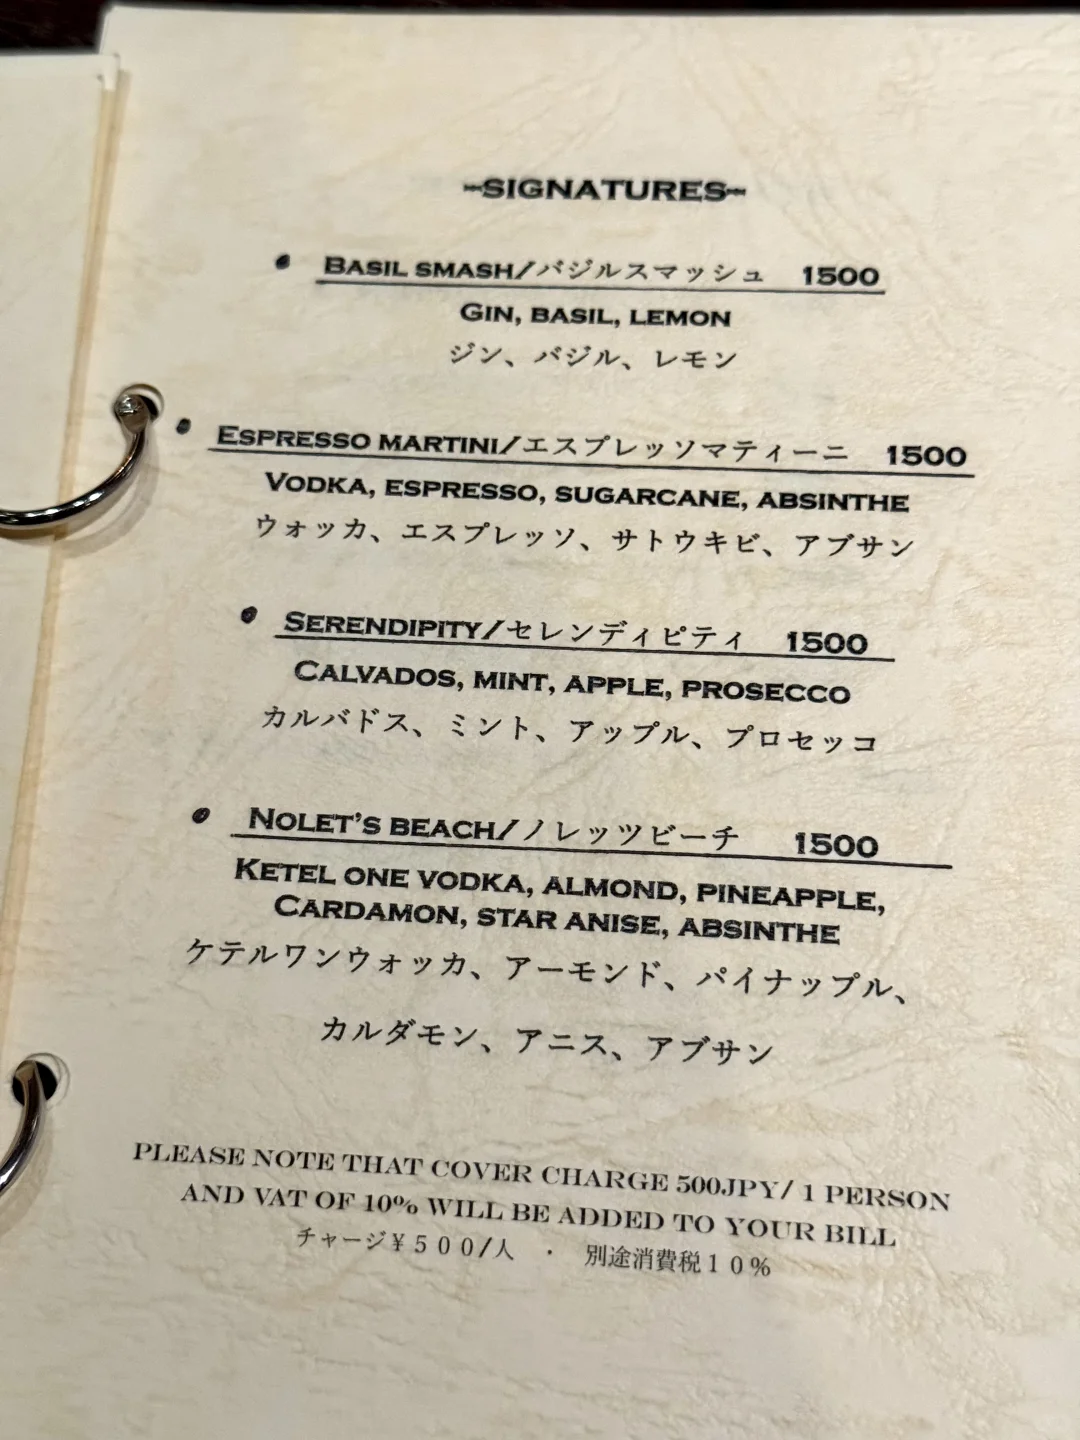 -SIGNATURES-
• BASIL SMASH/バジルスマッシュ 1500
GIN, BASIL, LEMON
ジン、バジル、レモン
• ESPRESSO MARTINI/エスプレッソマティーニ 1500
VODKA, ESPRESSO, SUGARCANE, ABSINTHE
ウォッカ、エスプレッソ、サトウキビ、アブサン
• SERENDIPITY/セレンディピティ 1500
CALVADOS, MINT, APPLE, PROSECCO
カルバドス、ミント、アップル、プロセッコ
• NOLET'S BEACH/ノレッツビーチ 1500
KETEL ONE VODKA, ALMOND, PINEAPPLE,
CARDAMON, STAR ANISE, ABSINTHE
ケテルワンウォッカ、アーモンド、パイナップル、
カルダモン、アニス、アブサン
PLEASE NOTE THAT COVER CHARGE 500JPY/ 1 PERSON
AND VAT OF 10% WILL BE ADDED TO YOUR BILL
チャージ¥５００/人 ・ 別途消費税１０％